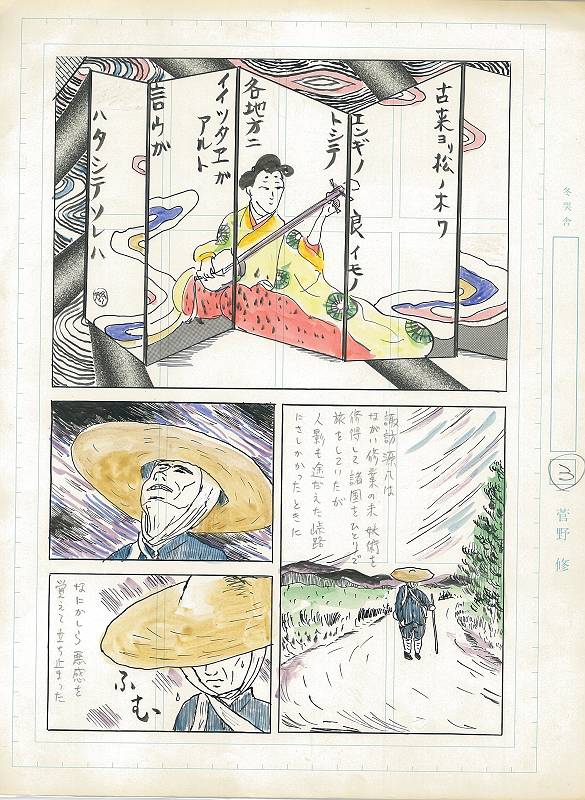 古来ヨリ松ノ木ワ
エンギノ良イモノ
トシテ
各地方ニ
イイツタヱガ
アルト
言ウガ
ハタシテソレハ
諏訪源八は
ながい修業の末 妖術を
修得して諸国をひとりで
旅をしていたが
人影も途だえた峠路
にさしかかったときに
なにかしら悪感を
覚えて立ち止まった
ふむ
冬哭舎
3
菅野 修